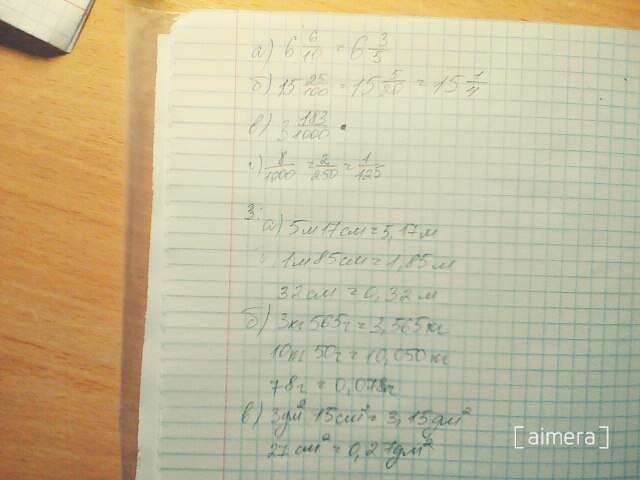 а) 6 6/10 = 6 3/5
б) 15 25/100 = 15 5/20 = 15 1/4
в) 3 183/1000 .
г) 8/1000 = 2/250 = 1/125
3. а) 5м 17см = 5,17м
1м 85см = 1,85м
32см = 0,32м
б) 3кг 565г = 3,565кг
10кг 50г = 10,050кг
78г = 0,078г
в) 3дм² 15см² = 3,15дм²
27см² = 0,27дм²
[aimera]